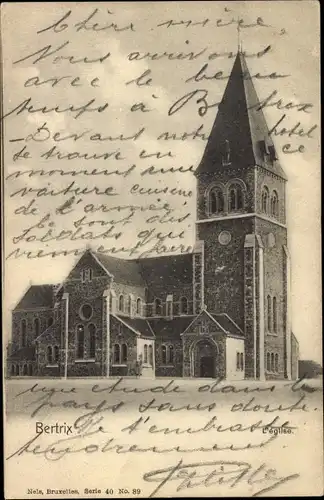 Chère
Nous arrivons
avec le beau
temps à Bertrix
– Devant notre hôtel
se trouve en ce
moment une
voiture cuisine
de l'armée
ce sont des
Soldats qui
viennent
une dans le
pays sans doute.
Je t'embrasse
tendrement
Bertrix
L'église.
Nels, Bruxelles, Serie 40 No. 89